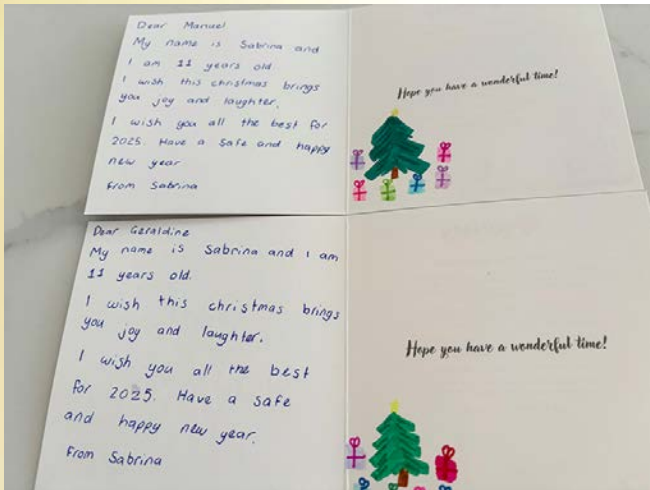 Dear Manuel
My name is Sabrina and
I am 11 years old.
I wish this christmas brings
you joy and laughter.
I wish you all the best for
2025. Have a safe and happy
new year
From Sabrina
Hope you have a wonderful time!
Dear Geraldine
My name is Sabrina and I am
11 years old.
I wish this christmas brings
you joy and laughter.
I wish you all the best
for 2025. Have a safe
and happy new year.
From Sabrina
Hope you have a wonderful time!